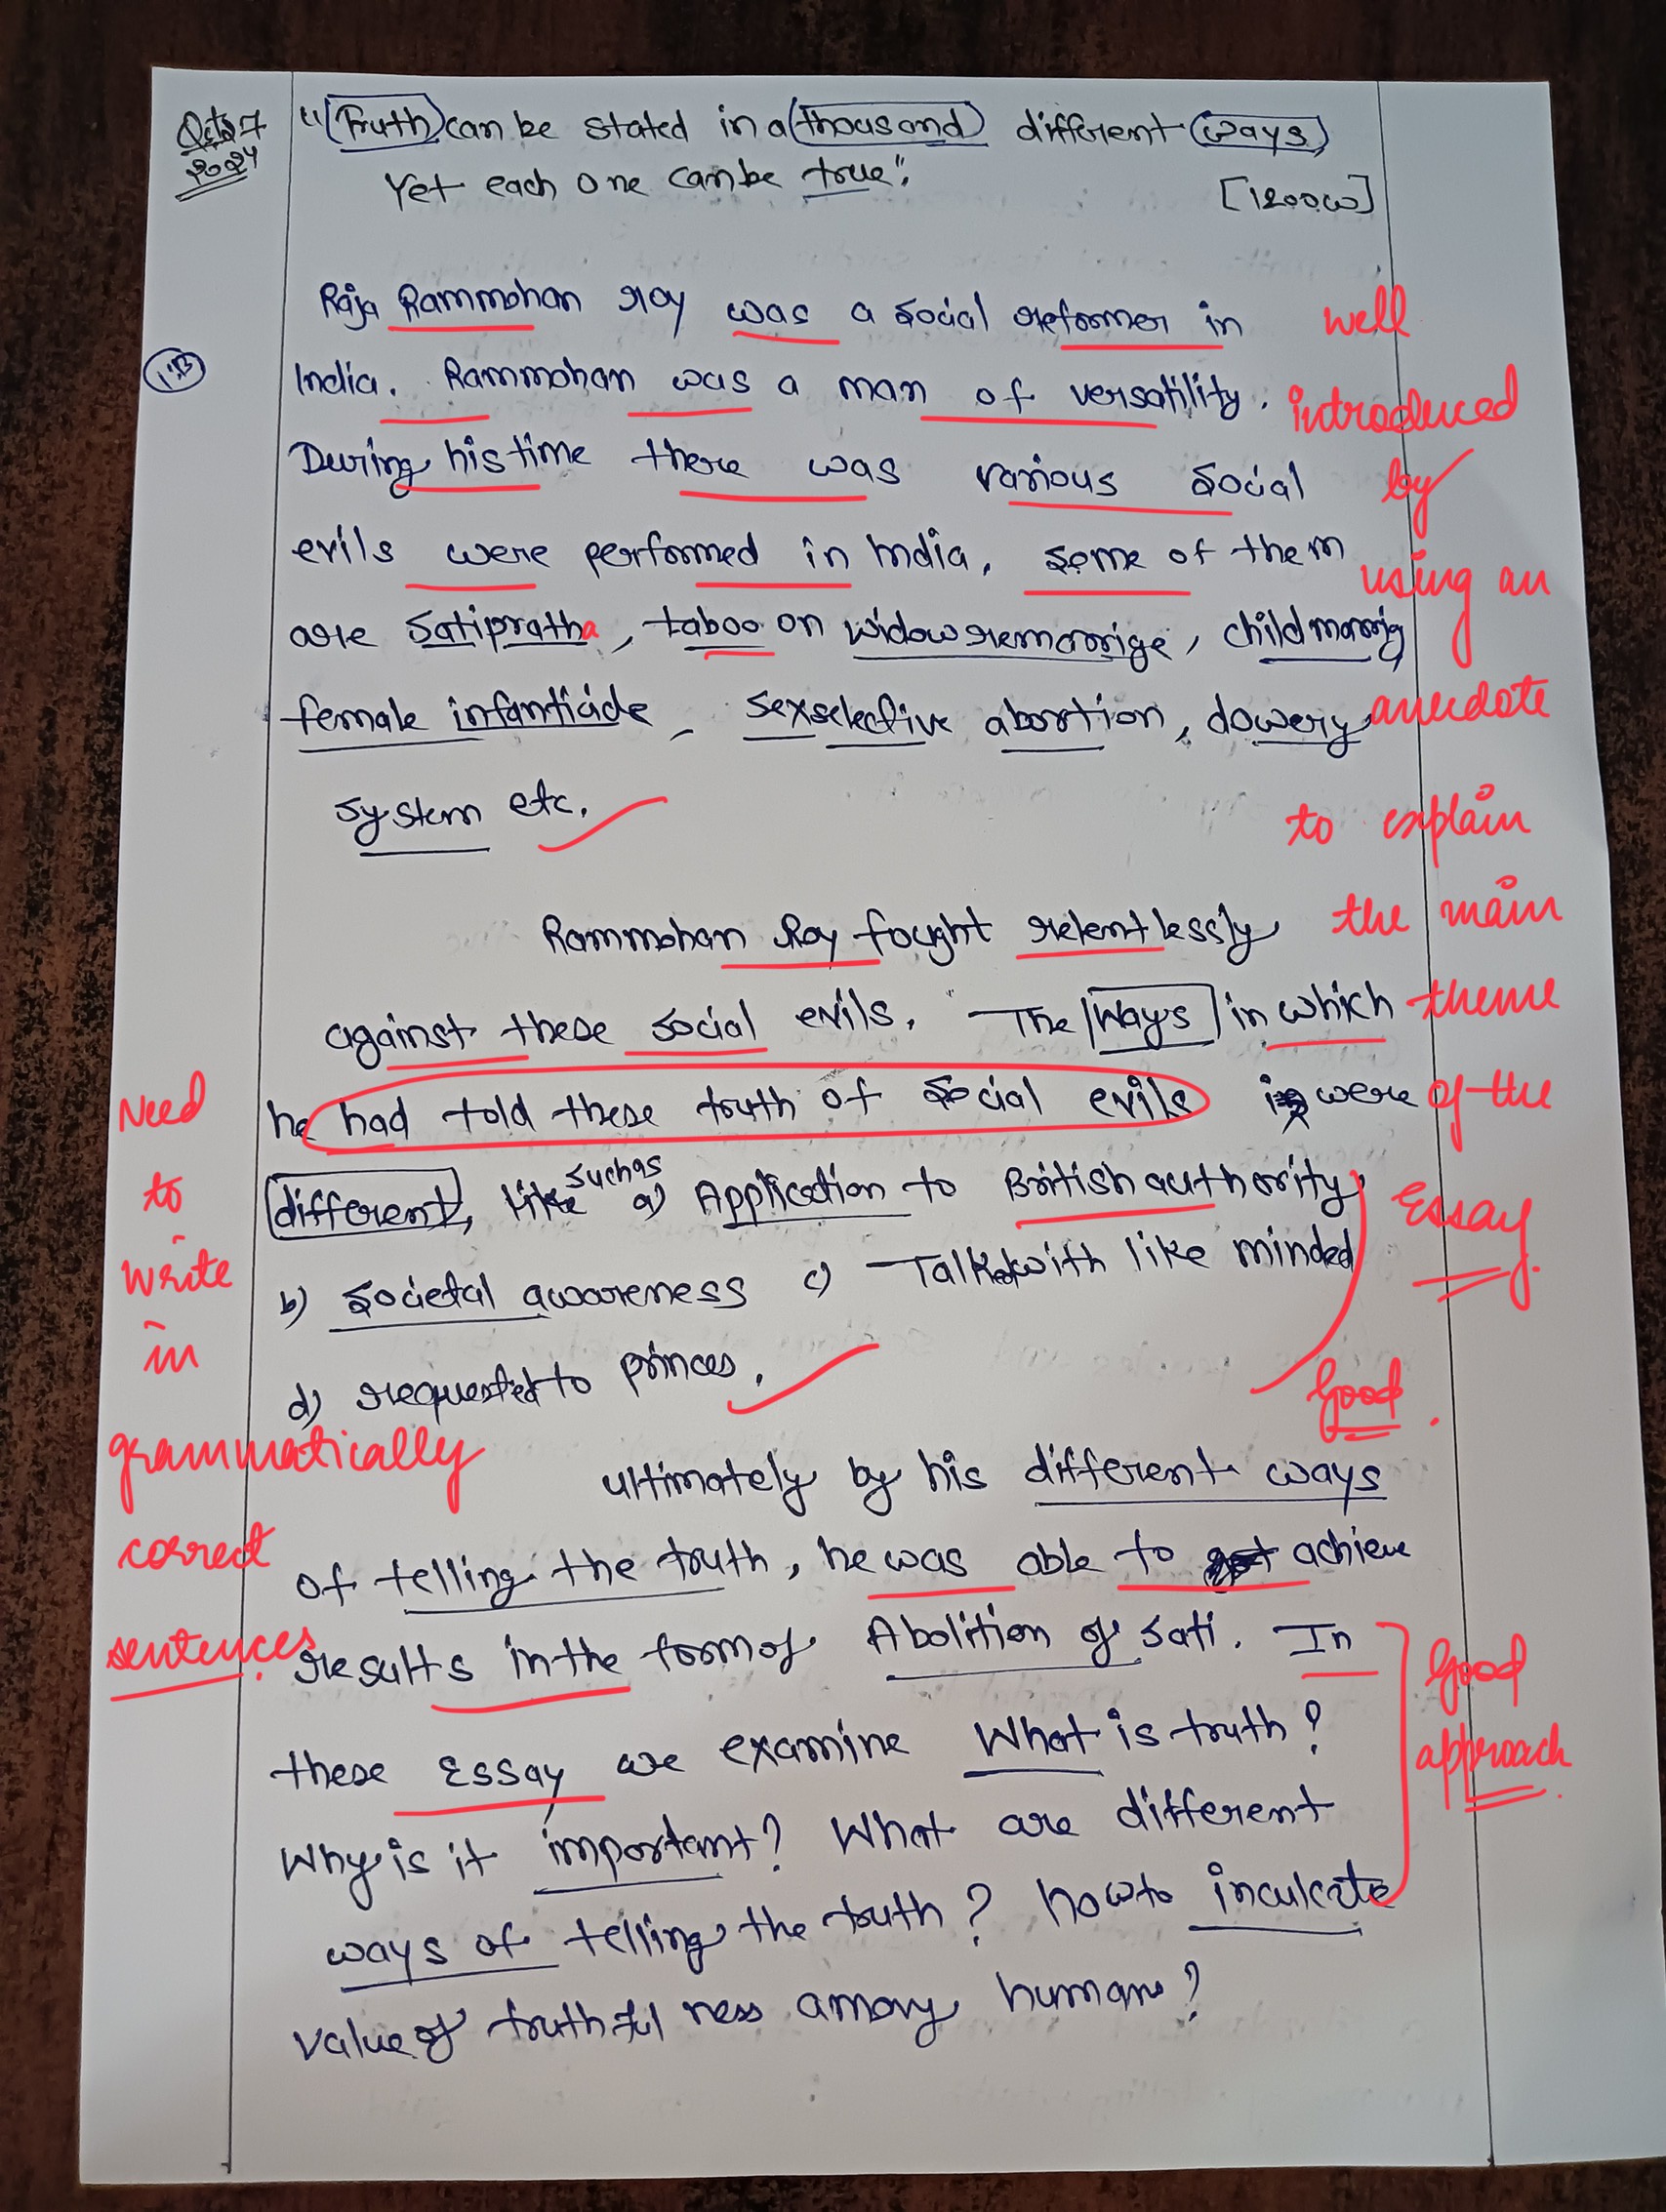 Oct 27
2024
"Truth can be stated in a thousand different ways
Yet each one can be true".
[1200w]
Raja Rammohan Roy was a social reformer in
India. Rammohan was a man of versatility.
During his time there was various social
evils were performed in India. some of them
are Satipratha, taboo on widow remarrige, child marrig
female infanticide, sexselective abortion, dowery
system etc.
Rammohan Roy fought relentlessly
against these social evils. The ways in which
he had told these truth of social evils were
different, such as a) Application to British authority
b) societal awareness c) Talk with like minded
d) requested to princes.
ultimately by his different ways
of telling the truth, he was able to achieve
results in the form of Abolition of sati. In
these Essay we examine What is truth?
Why is it important? What are different
ways of telling the truth? how to inculcate
value of truthful ness among humans?
well
introduced
by
using an
anecdote
to explain
the main
theme
of the
Essay.
Good.
Good
approach.
Need
to
write
in
grammatically
correct
sentences.